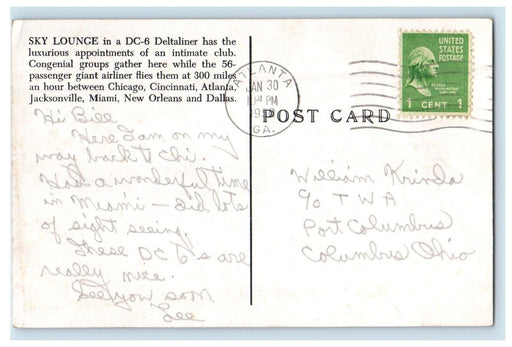 SKY LOUNGE in a DC-6 Deltaliner has the
luxurious appointments of an intimate club.
Congenial groups gather here while the 56-
passenger giant airliner flies them at 300 miles
an hour between Chicago, Cincinnati, Atlanta,
Jacksonville, Miami, New Orleans and Dallas.
Hi Bill
Here I am on my
way back to Chi.
Had a wonderful time
in Miami – did lots
of sight seeing.
These DC 6's are
really nice.
See you soon
Lee
ATLANTA
JAN 30
PM
GA.
UNITED
STATES
POSTAGE
1 CENT 1
POST CARD
William Krinda
c/o TWA
Port Columbus
Columbus Ohio